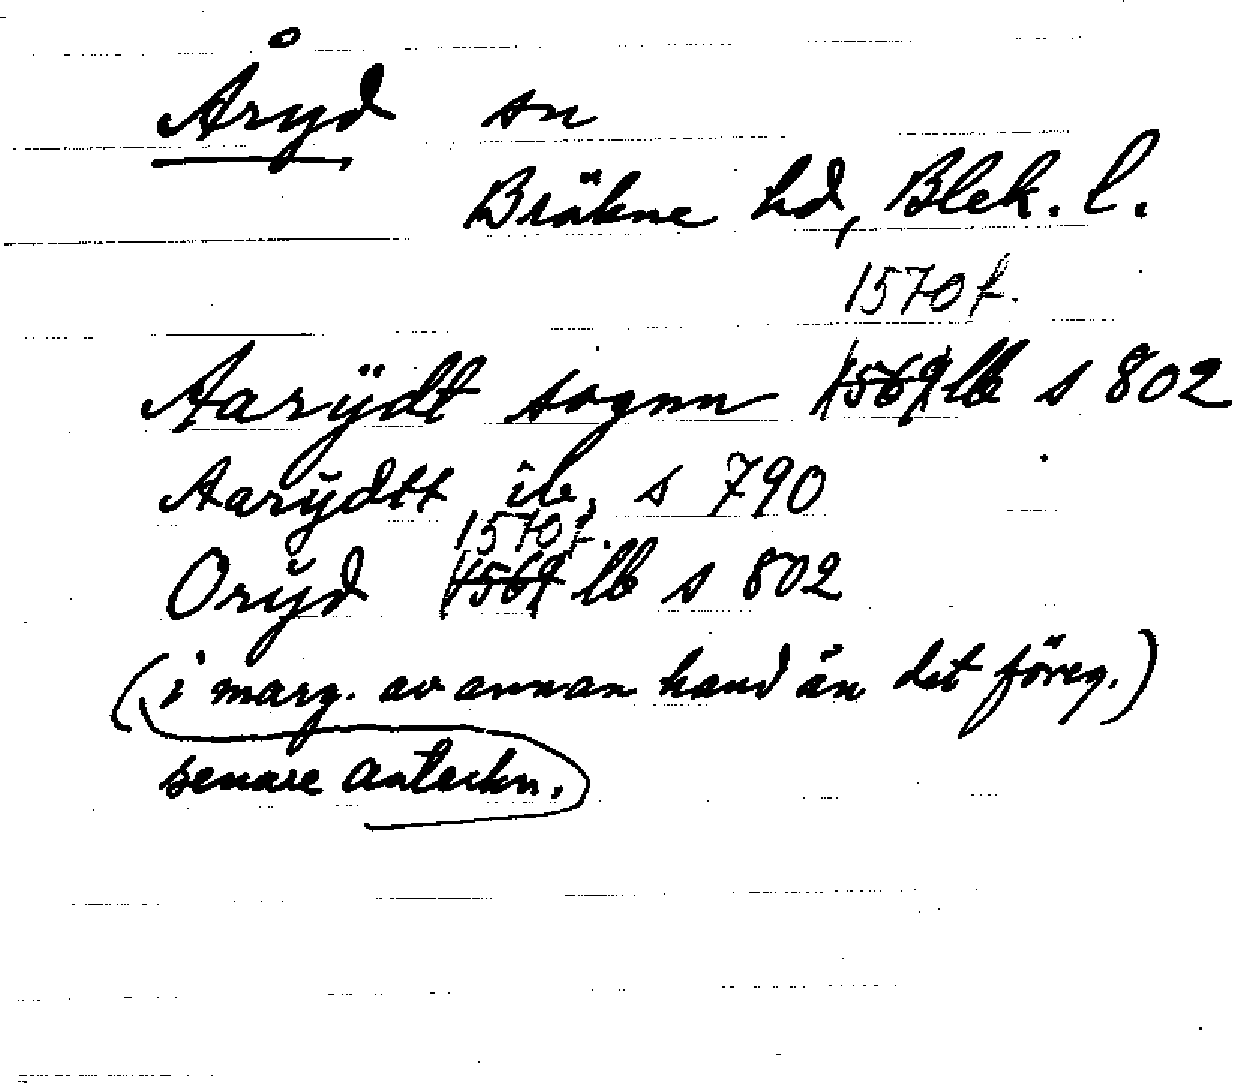 Åryd sn
Bräkne hd, Blek. l.
1570 f.
Aarÿdt sognn 1569 lb s 802
Aarÿdtt ib. s 790
1570 f.
Orÿd 1569 lb s 802
(i marg. av annan hand än det föreg.)
senare anteckn.